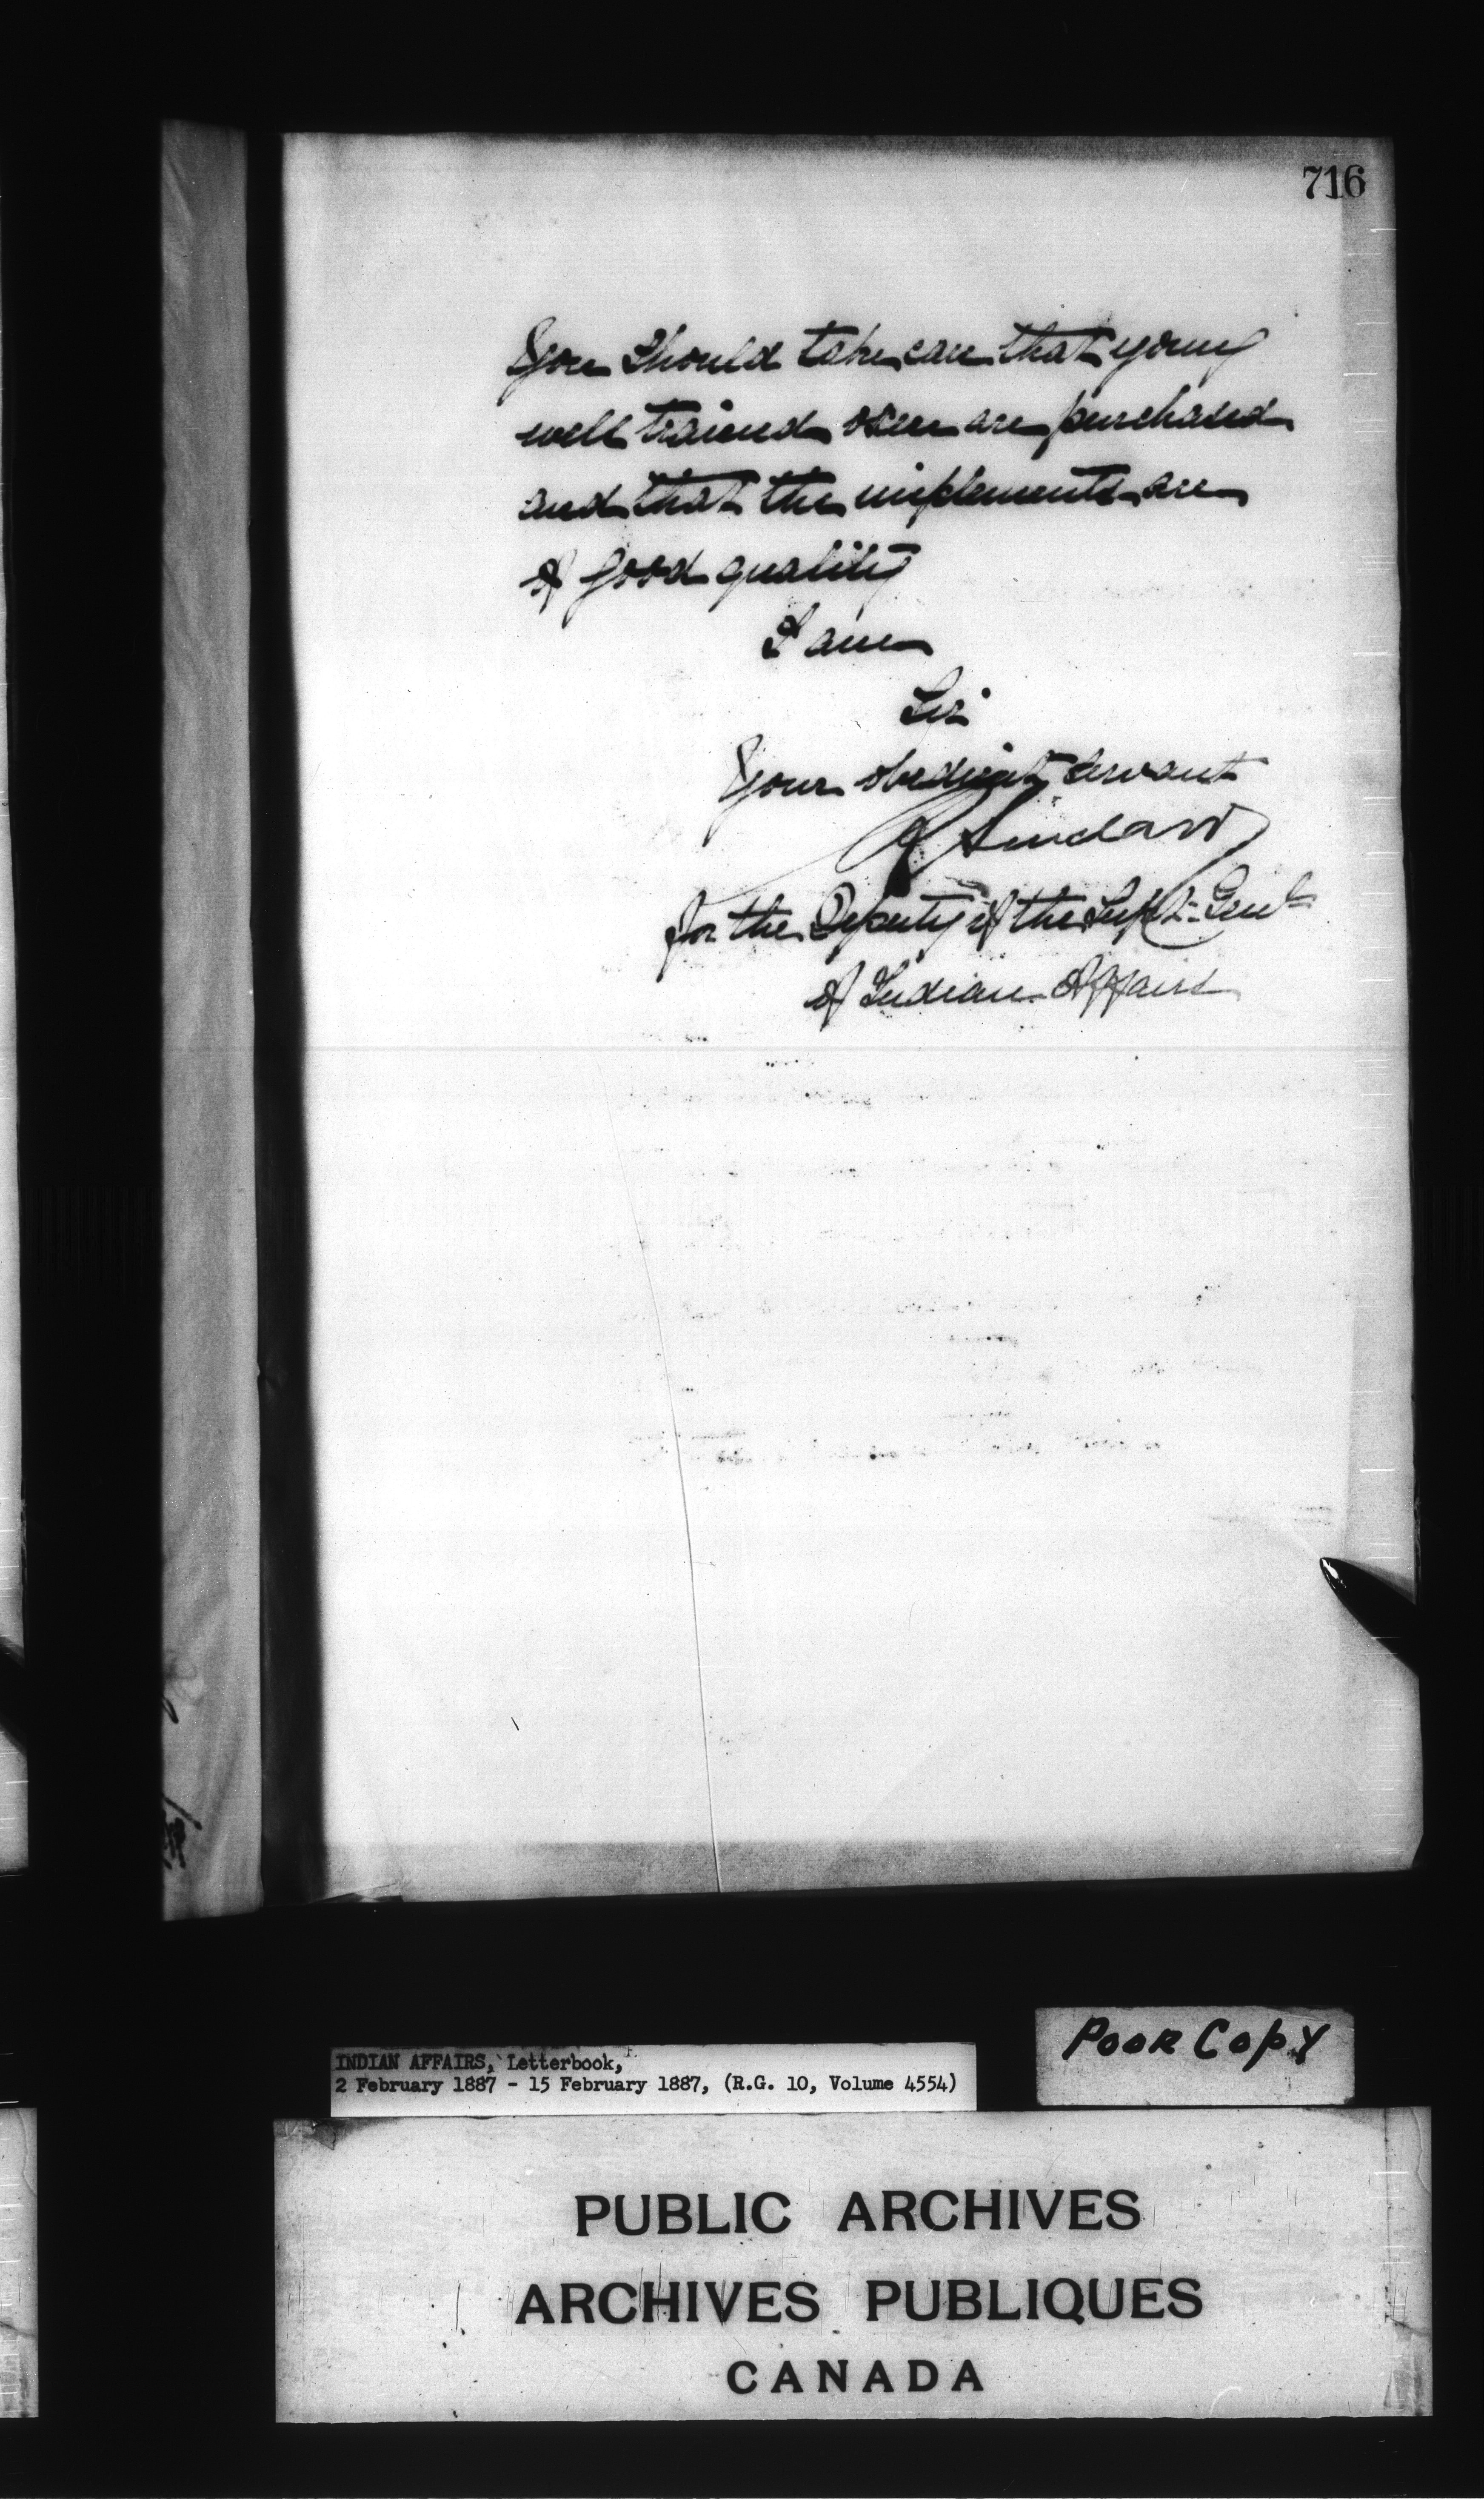 716
You should take care that young
well trained oxen are purchased
and that the implements are
of good quality
I am
Sir
Your obedient servant
R Sinclair
for the Deputy of the Supt. Genl
of Indian Affairs
Poor Copy
INDIAN AFFAIRS, Letterbook,
2 February 1887 - 15 February 1887, (R.G. 10, Volume 4554)
PUBLIC ARCHIVES
ARCHIVES PUBLIQUES
CANADA